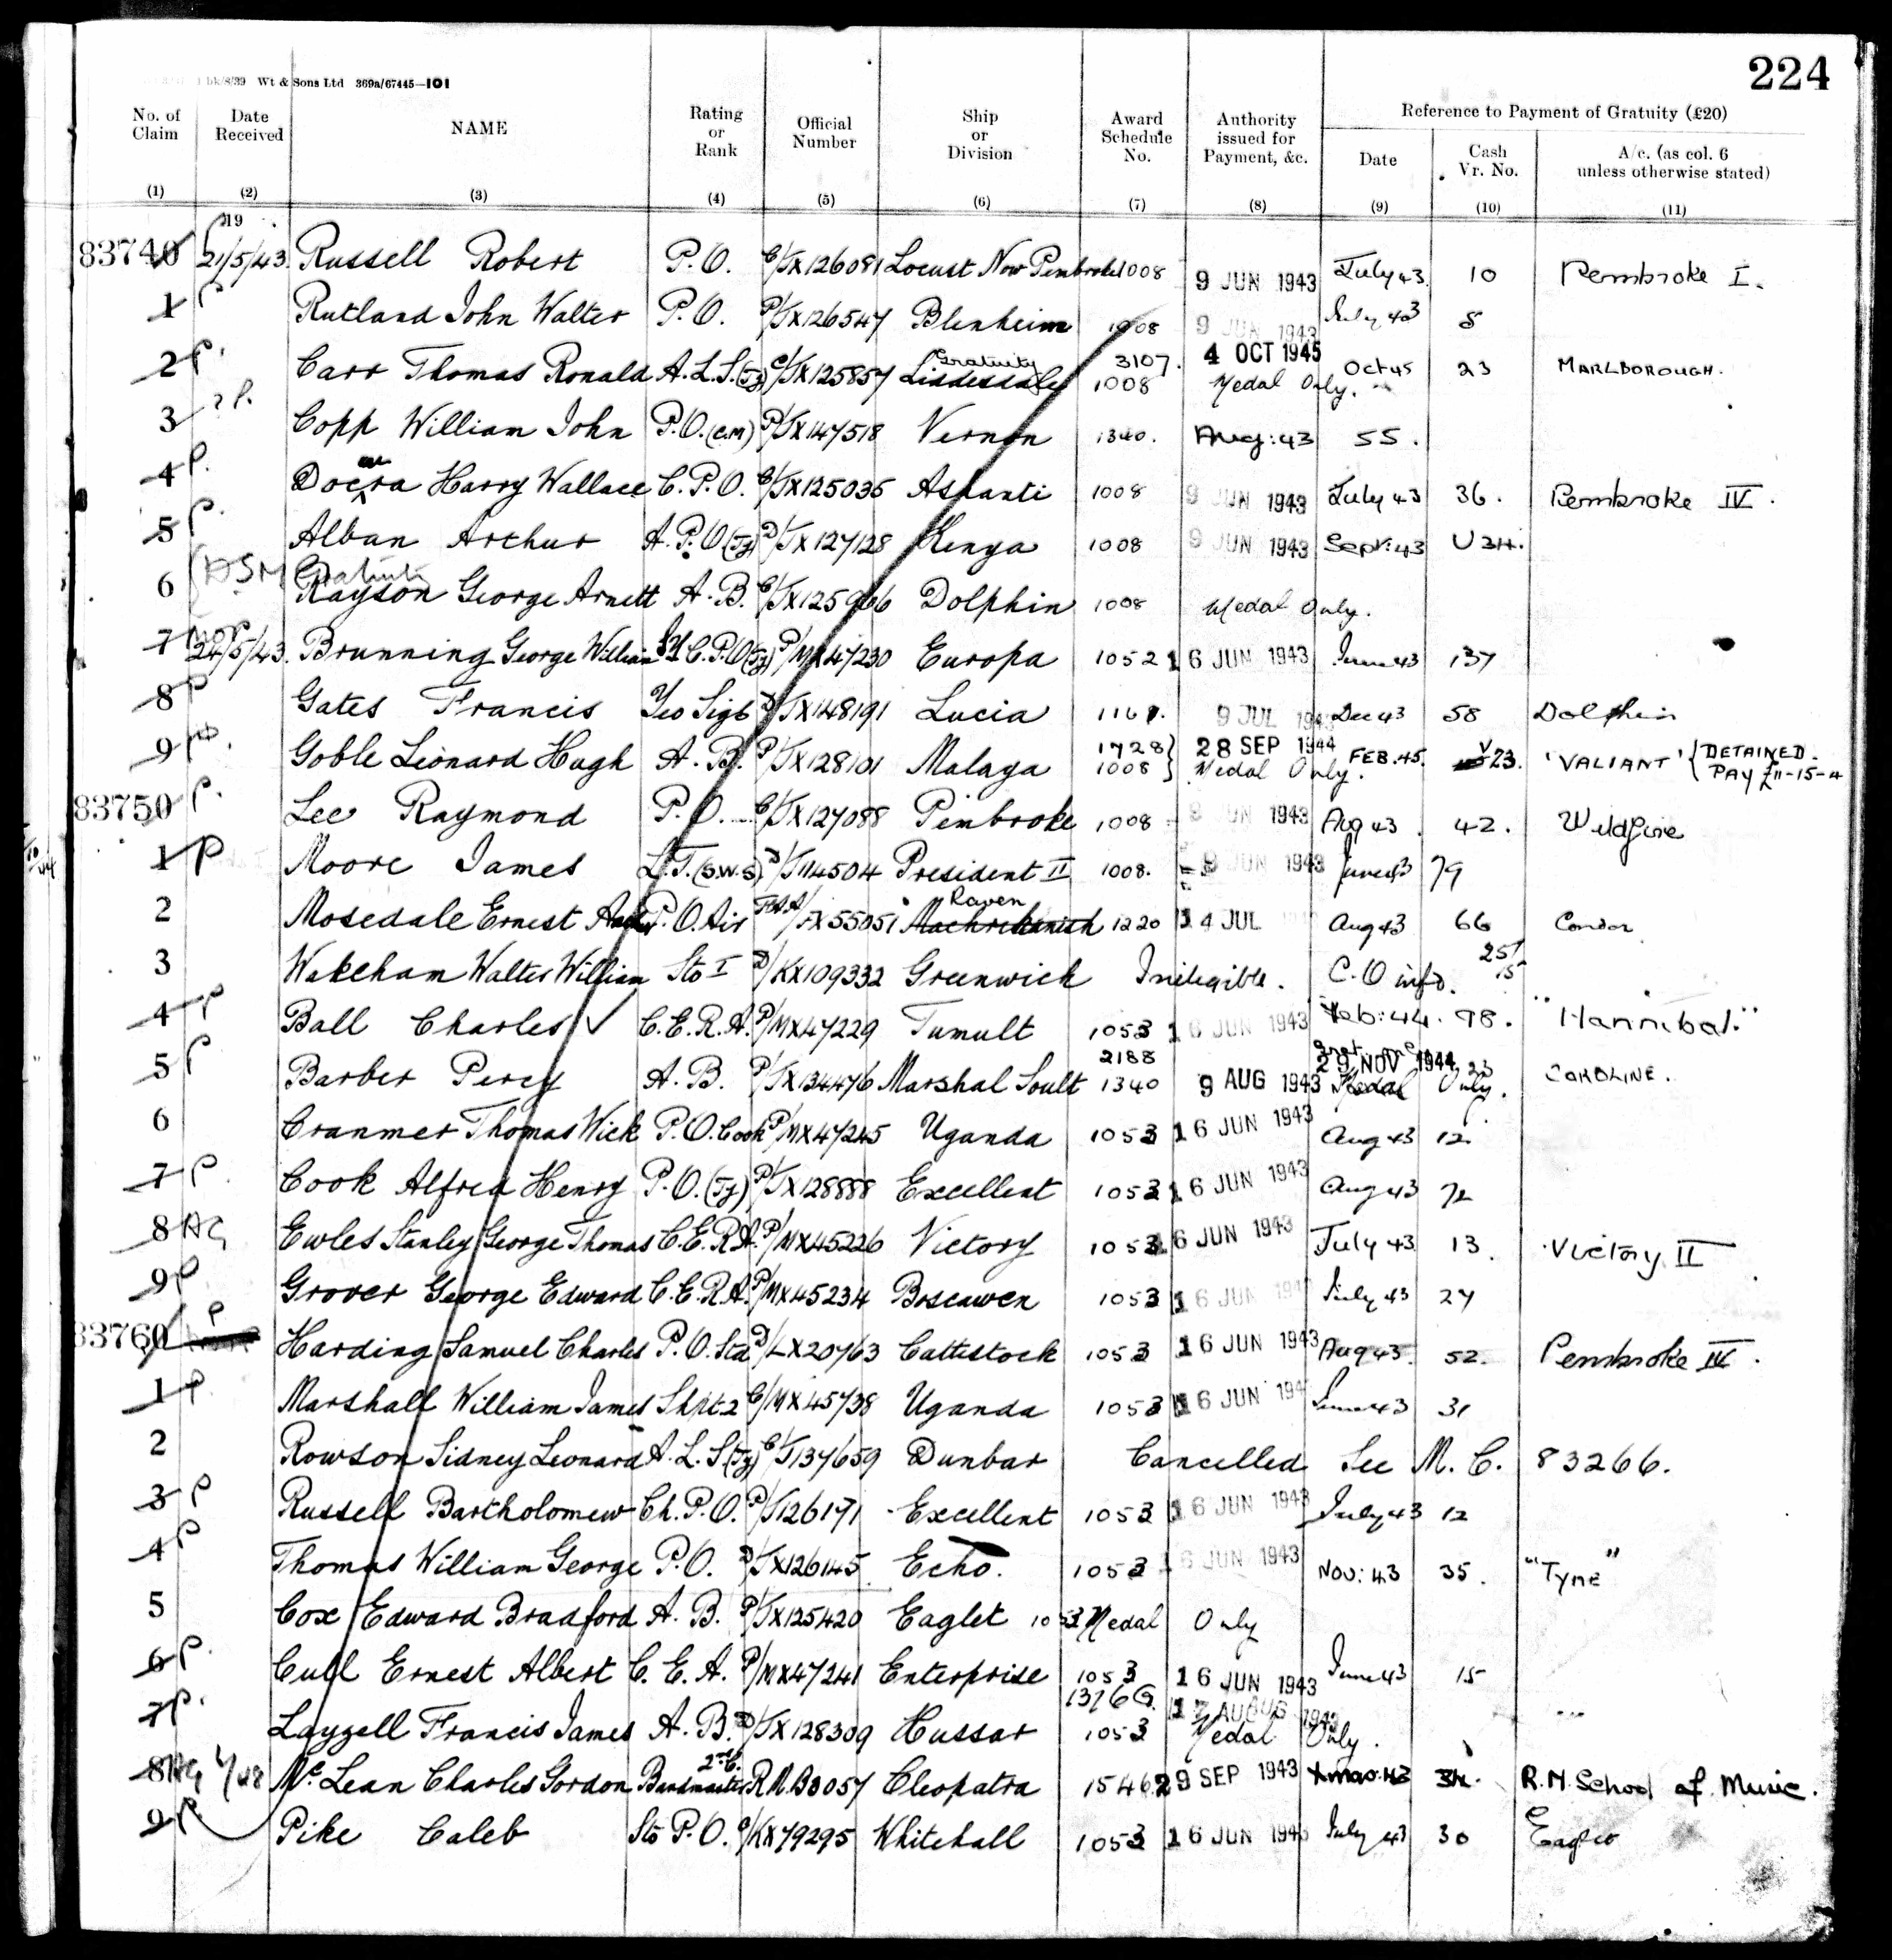 224
bk/8/39 Wt & Sons Ltd 369a/67445—101
Reference to Payment of Gratuity (£20)
No. of Claim Date Received NAME Rating or Rank Official Number Ship or Division Award Schedule No. Authority issued for Payment, &c. Date Cash Vr. No. A/c. (as col. 6 unless otherwise stated)
(1) (2) (3) (4) (5) (6) (7) (8) (9) (10) (11)
19
83740 21/5/43. Russell Robert P.O. C/JX126081 Locust Now Pembroke 1008 9 JUN 1943 July 43 10 Pembroke I.
1 P Rutland John Walter P.O. P/JX126547 Blenheim 1008 9 JUN 1943 July 43 8
Gratuity 3107. 4 OCT 1945
2 P. Carr Thomas Ronald A.L.S.(Ty) C/JX125857 Liddesdale 1008 Medal Only. Oct 45 23 MARLBOROUGH.
3 P. Copp William John P.O.(C.M) P/JX147518 Vernon 1340. Aug: 43 55.
4 P. Docwra Harry Wallace C.P.O. C/JX125035 Ashanti 1008 9 JUN 1943 July 43 36. Pembroke IV.
5 P. Alban Arthur A.P.O(Ty) D/JX127128 Kenya 1008 9 JUN 1943 Sept: 43 U34.
(DSM Gratuity
6 Rayson George Arnett A.B. C/JX125966 Dolphin 1008 Medal Only.
7 24/5/43. Brunning George William C.P.O(Ty) P/MX47230 Europa 1052 16 JUN 1943 June 43 137
8 P Gates Francis Yeo Sigs D/JX148191 Lucia 1167. 9 JUL 1943 Dec 43 58 Dolphin
1728} 28 SEP 1944
9 P. Goble Leonard Hugh A.B. P/JX128101 Malaga 1008} Medal Only. FEB. 45. V 23. 'VALIANT' {DETAINED. PAY £11-15-4
83750 P. Lee Raymond P.O. C/JX127088 Pembroke 1008 9 JUN 1943 Aug 43 42. Wildfire
1 P Moore James L.T.(S.W.S) D/J114504 President II 1008. 9 JUN 1943 June 43 79
Raven
2 Mosedale Ernest P.O. Air FAA/FX55051 Machrihanish 1220 14 JUL Aug 43 66 Condor
3 Wakeham Walter William Sto I D/KX109332 Greenwich Ineligible. C.O info. 25/15
4 P Ball Charles ✓ C.E.R.A. P/MX47229 Tumult 1053 16 JUN 1943 Feb: 44. 98. "Hannibal."
2188 29 NOV 1944 23
5 P Barber Percy A.B. P/JX134476 Marshal Soult 1340 9 AUG 1943 Medal Only. CAROLINE.
6 Cranmer Thomas Wick P.O. Cook P/MX47245 Uganda 1053 16 JUN 1943 Aug 43 12.
7 P. Cook Alfred Henry P.O.(Ty) P/JX128888 Excellent 1053 16 JUN 1943 Aug 43 72
8 AG Ewles Stanley George Thomas C.E.R.A. P/MX45226 Victory 1053 16 JUN 1943 July 43 13. Victory II
9 P Grover George Edward C.E.R.A. P/MX45234 Boscawen 1053 16 JUN 194 July 43 27
83760 P Harding Samuel Charles P.O. Std D/LX20763 Cattistock 1053 16 JUN 1943 Aug 43. 52. Pembroke IV.
1 P. Marshall William James Shpt.2 C/MX45738 Uganda 1053 16 JUN 194 June 43 31
2 Rowson Sidney Leonard A.L.S(Ty) C/J137659 Dunbar Cancelled See M.C. 83266.
3 P Russell Bartholomew Ch.P.O. P/J126171 Excellent 1053 16 JUN 1943 July 43 12
4 P Thomas William George P.O. D/JX126145 Echo. 1053 16 JUN 1943 Nov: 43 35. "Tyne"
5 Cox Edward Bradford A.B. P/JX125420 Eaglet 1053 Medal Only
6 P. Cull Ernest Albert C.E.A. P/MX47241 Enterprise 1053 16 JUN 1943 June 43 15
1376G. 17 AUGUS 1943
7 P. Layzell Francis James A.B. D/JX128309 Hussar 1053 Medal Only.
8 AG McLean Charles Gordon 2nd C. Bandmaster R.M.B3057 Cleopatra 1546. 29 SEP 1943 Xmas. 43 34. R.M. School of Music.
9 P. Pike Caleb Sto P.O. C/KX79295 Whitehall 1053 16 JUN 1943 July 43 30 Eaglet